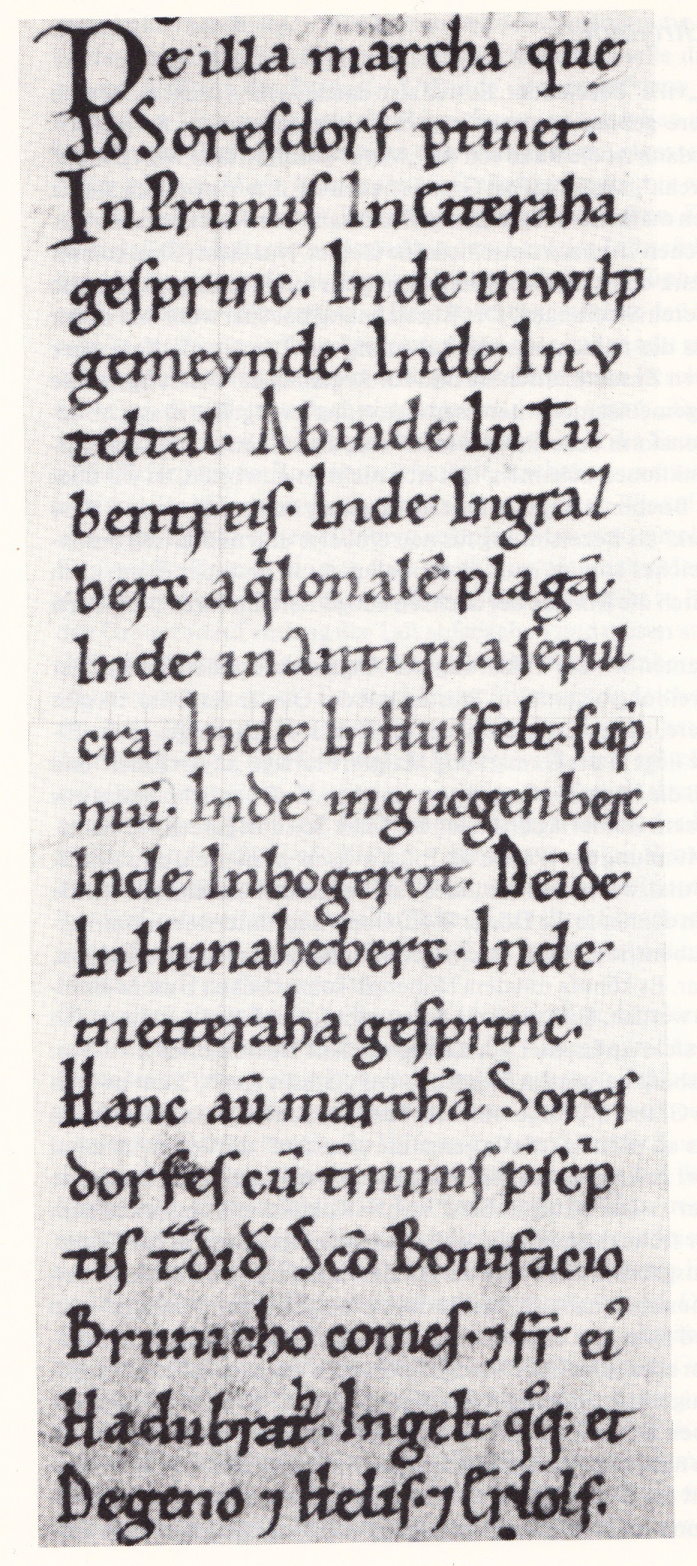 De illa marcha que
ad Soresdorf ptinet.
In Primis In Citeraha
gesprinc. Inde inwilp
gemeynde. Inde In y
teltal. Abinde In Tu
bentreis Inde Ingra
berc aq̇lonalē plagā.
Inde in Antiqua sepul
cra. Inde In Huisfelt sup
mū Inde ingucgenberc
Inde Inbogerot. Deīde
In Hunaheberc. Inde
metteraha gesprinc.
Hanc au marchā Sores
dorfes cū tīminis p̄scp
tis t̄did S̄cō Bonifacio
Brunicho comes. ⁊ fr̄ ei᾿
Hadubrah̄t. Ingelt q̊q; et
Degeno ⁊ Helis. ⁊ Erlolf.